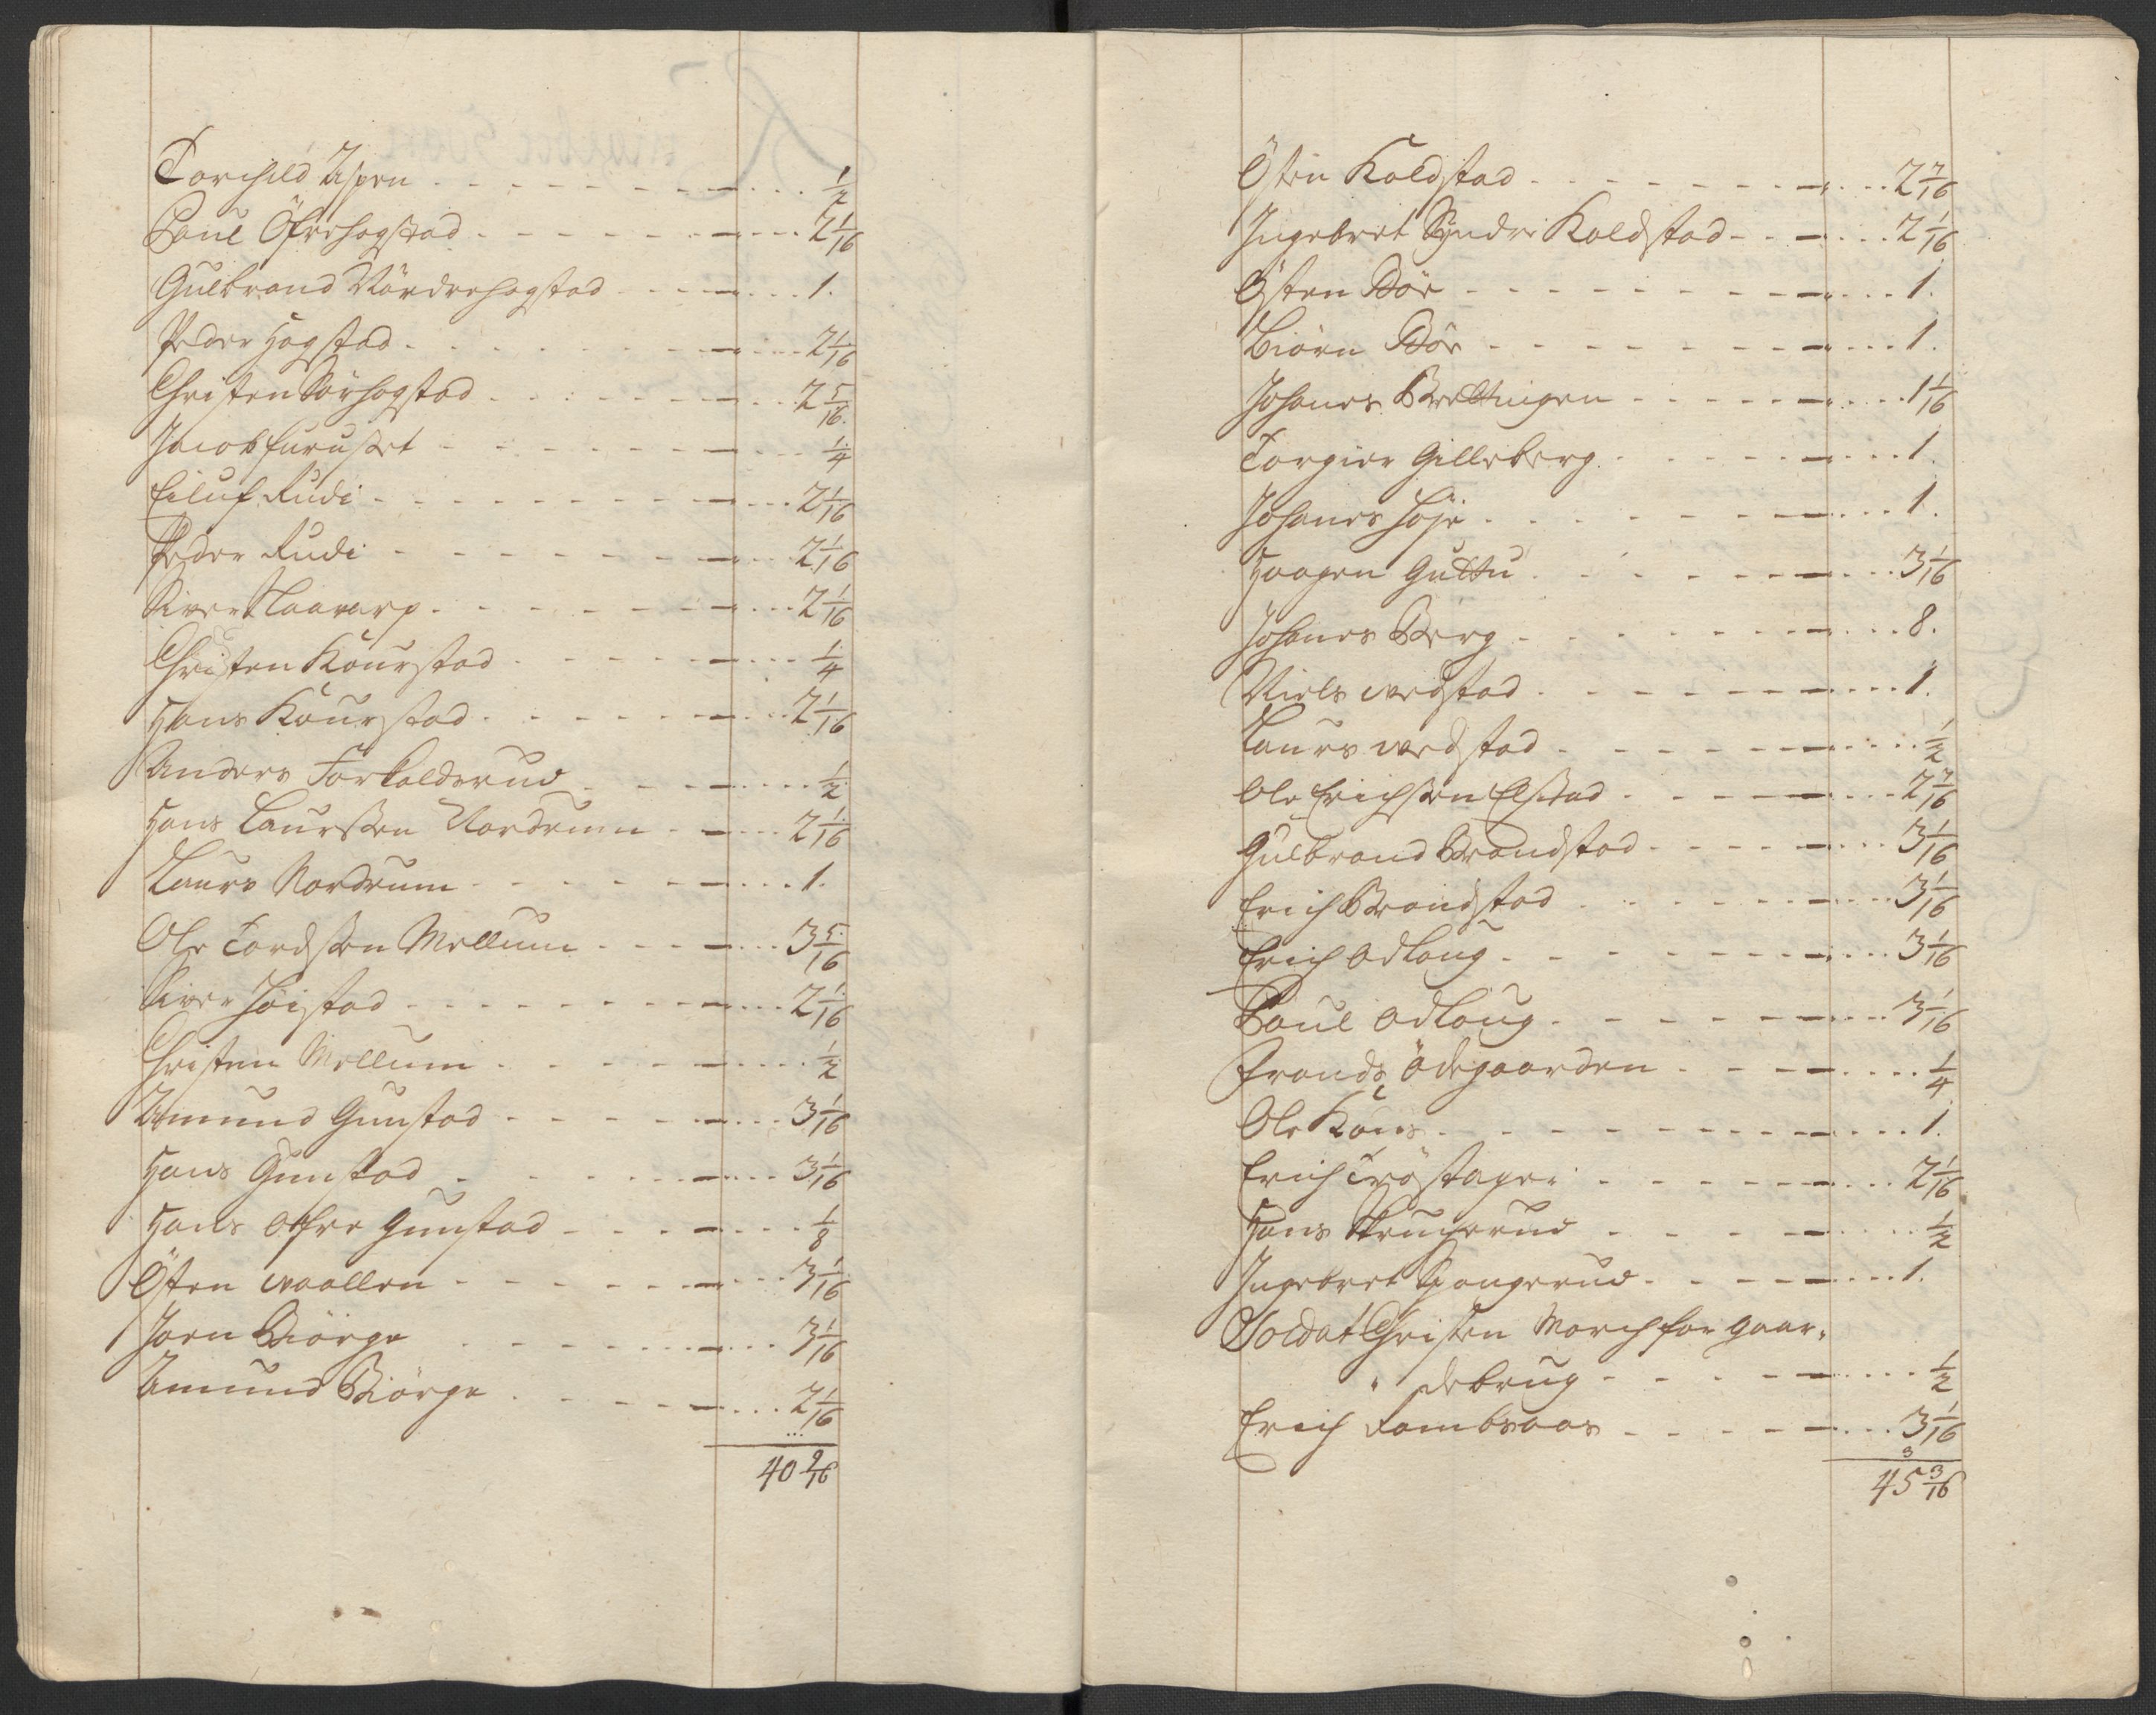 Torchild Aspen - - - - - - - - - ... 1/2
Poul Öfrehogstad - - - - - - - ... 2 1/16
Gulbrand Nördrehogstad - - - - ... 1.
Peder Hogstad - - - - - - - ... 2 1/16
Christen Sörhogstad - - - - - - ... 2 5/16
Jacob furuset - - - - - - - ... 1/4
Eiluf Rudi - - - - - - - - ... 2 1/16
Peder Rudi - - - - - - - - ... 2 1/16
Siver Taawarp - - - - - - - ... 2 1/16
Christen Kourstad - - - - - ... 1/4
Hans Kourstad - - - - - - ... 2 1/16
Anders Forkalsrud - - - - ... 1/2
Hans Laurssen Nordrum - - ... 2 1/16
Laurs Nordrum - - - - - - ... 1.
Ole Tordssen Mellum - - - - ... 3 5/16
Siver Höistad - - - - - - - ... 2 1/16
Christen Mellum - - - - - - ... 1/2
Amund Gunstad - - - - - - ... 3 1/16
Hans Gunstad - - - - - - ... 3 1/16
Hans öfre Gunstad - - - - ... 1/8
Östen waallen - - - - - - ... 3 1/16
Jorn Biörge - - - - - - ... 3 1/16
Amund Biörge - - - - - ... 2 1/16
40 9/16
Östen Koldstad - - - - - - - ... 2 7/16
Ingebret Syndre Koldstad - - - ... 2 1/16
Östen Böe - - - - - - - - - ... 1.
Biörn Böe - - - - - - - - ... 1.
Johanes Brettingen - - - - - ... 1 1/16
Torgier Gilleberg - - - - - ... 1.
Johanes Höje - - - - - - - ... 1.
Haagen Guttu - - - - - - ... 3 1/16
Johanes Berg - - - - - - - ... 8.
Niels wedstad - - - - - - - ... 1.
Laurs wedstad - - - - - - ... 1/2
Ole Erichssen Elstad - - - - - ... 2 7/16
Gulbrand Brandstad - - - - - ... 3 1/16
Erich Brandstad - - - - - - ... 3 1/16
Erich odloug - - - - - - - ... 3 1/16
Poul odloug - - - - - - - ... 3 1/16
Frands Ödegaarden - - - - ... 1/4
Ole Kous - - - - - - - - ... 1.
Erich Tröstager - - - - - - ... 2 1/16
Hans Skrugerud - - - - - ... 1/2
Ingebret Spongerud - - - - - ... 1.
Soldat Christen Morch for gaar-
debrug - - - - - ... 1/2
Erich Lombsaas - - - - - ... 3 1/16
45 3/16